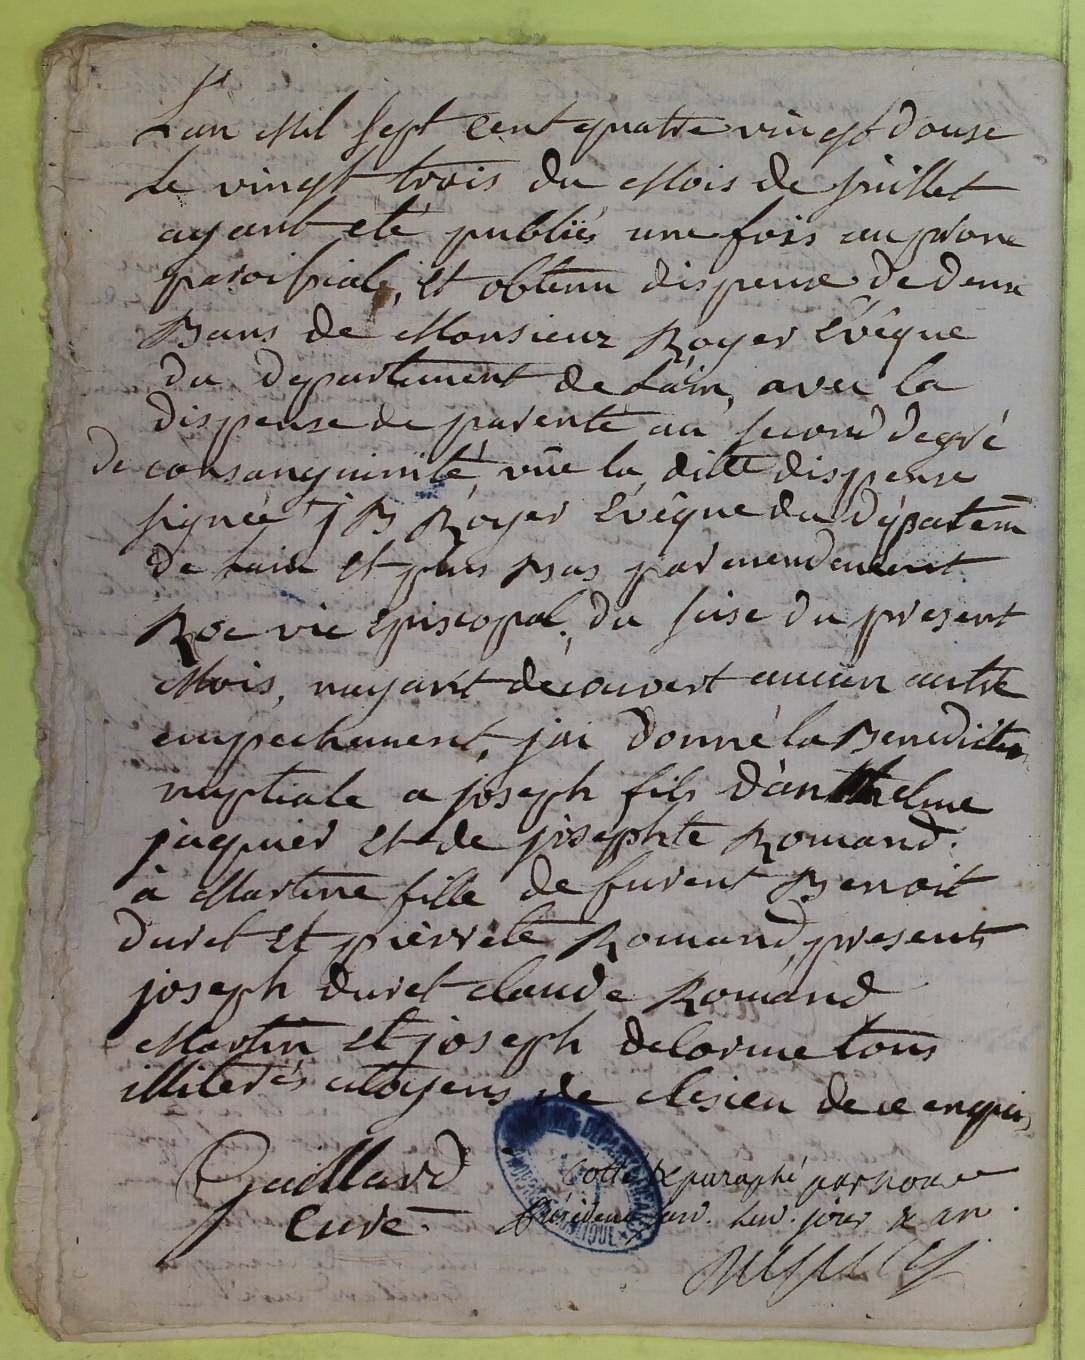 L'an Mil Sept Cent quatre vingt douse
Le vingt trois du Mois de juillet
ayant eté publiés une fois au prone
paroissial, et obtenu dispense de deux
Bans de Monsieur Royer Evêque
du departement de Lain, avec la
dispense de parenté au second degré
de consanguinité, vüe la ditte dispense
signée J B Royer Evêque du départem
de Lain et plus Bas par mendement
Roc vic Episcopal, du seise du present
Mois, nayant decouvert aucun autre
empechement, jai donné la Benediction
nuptiale a joseph fils d'anthelme
jaquier et de josephte Romand.
à Martine fille de furent Benoit
duret et pierrete Romand, present
joseph duret claude Romand
Martin et joseph delorme tous
illiterés citoyens de clesieu de ce enquis
Gaillard
Curé
Cotté & paraphé par nous
Président jour & an.